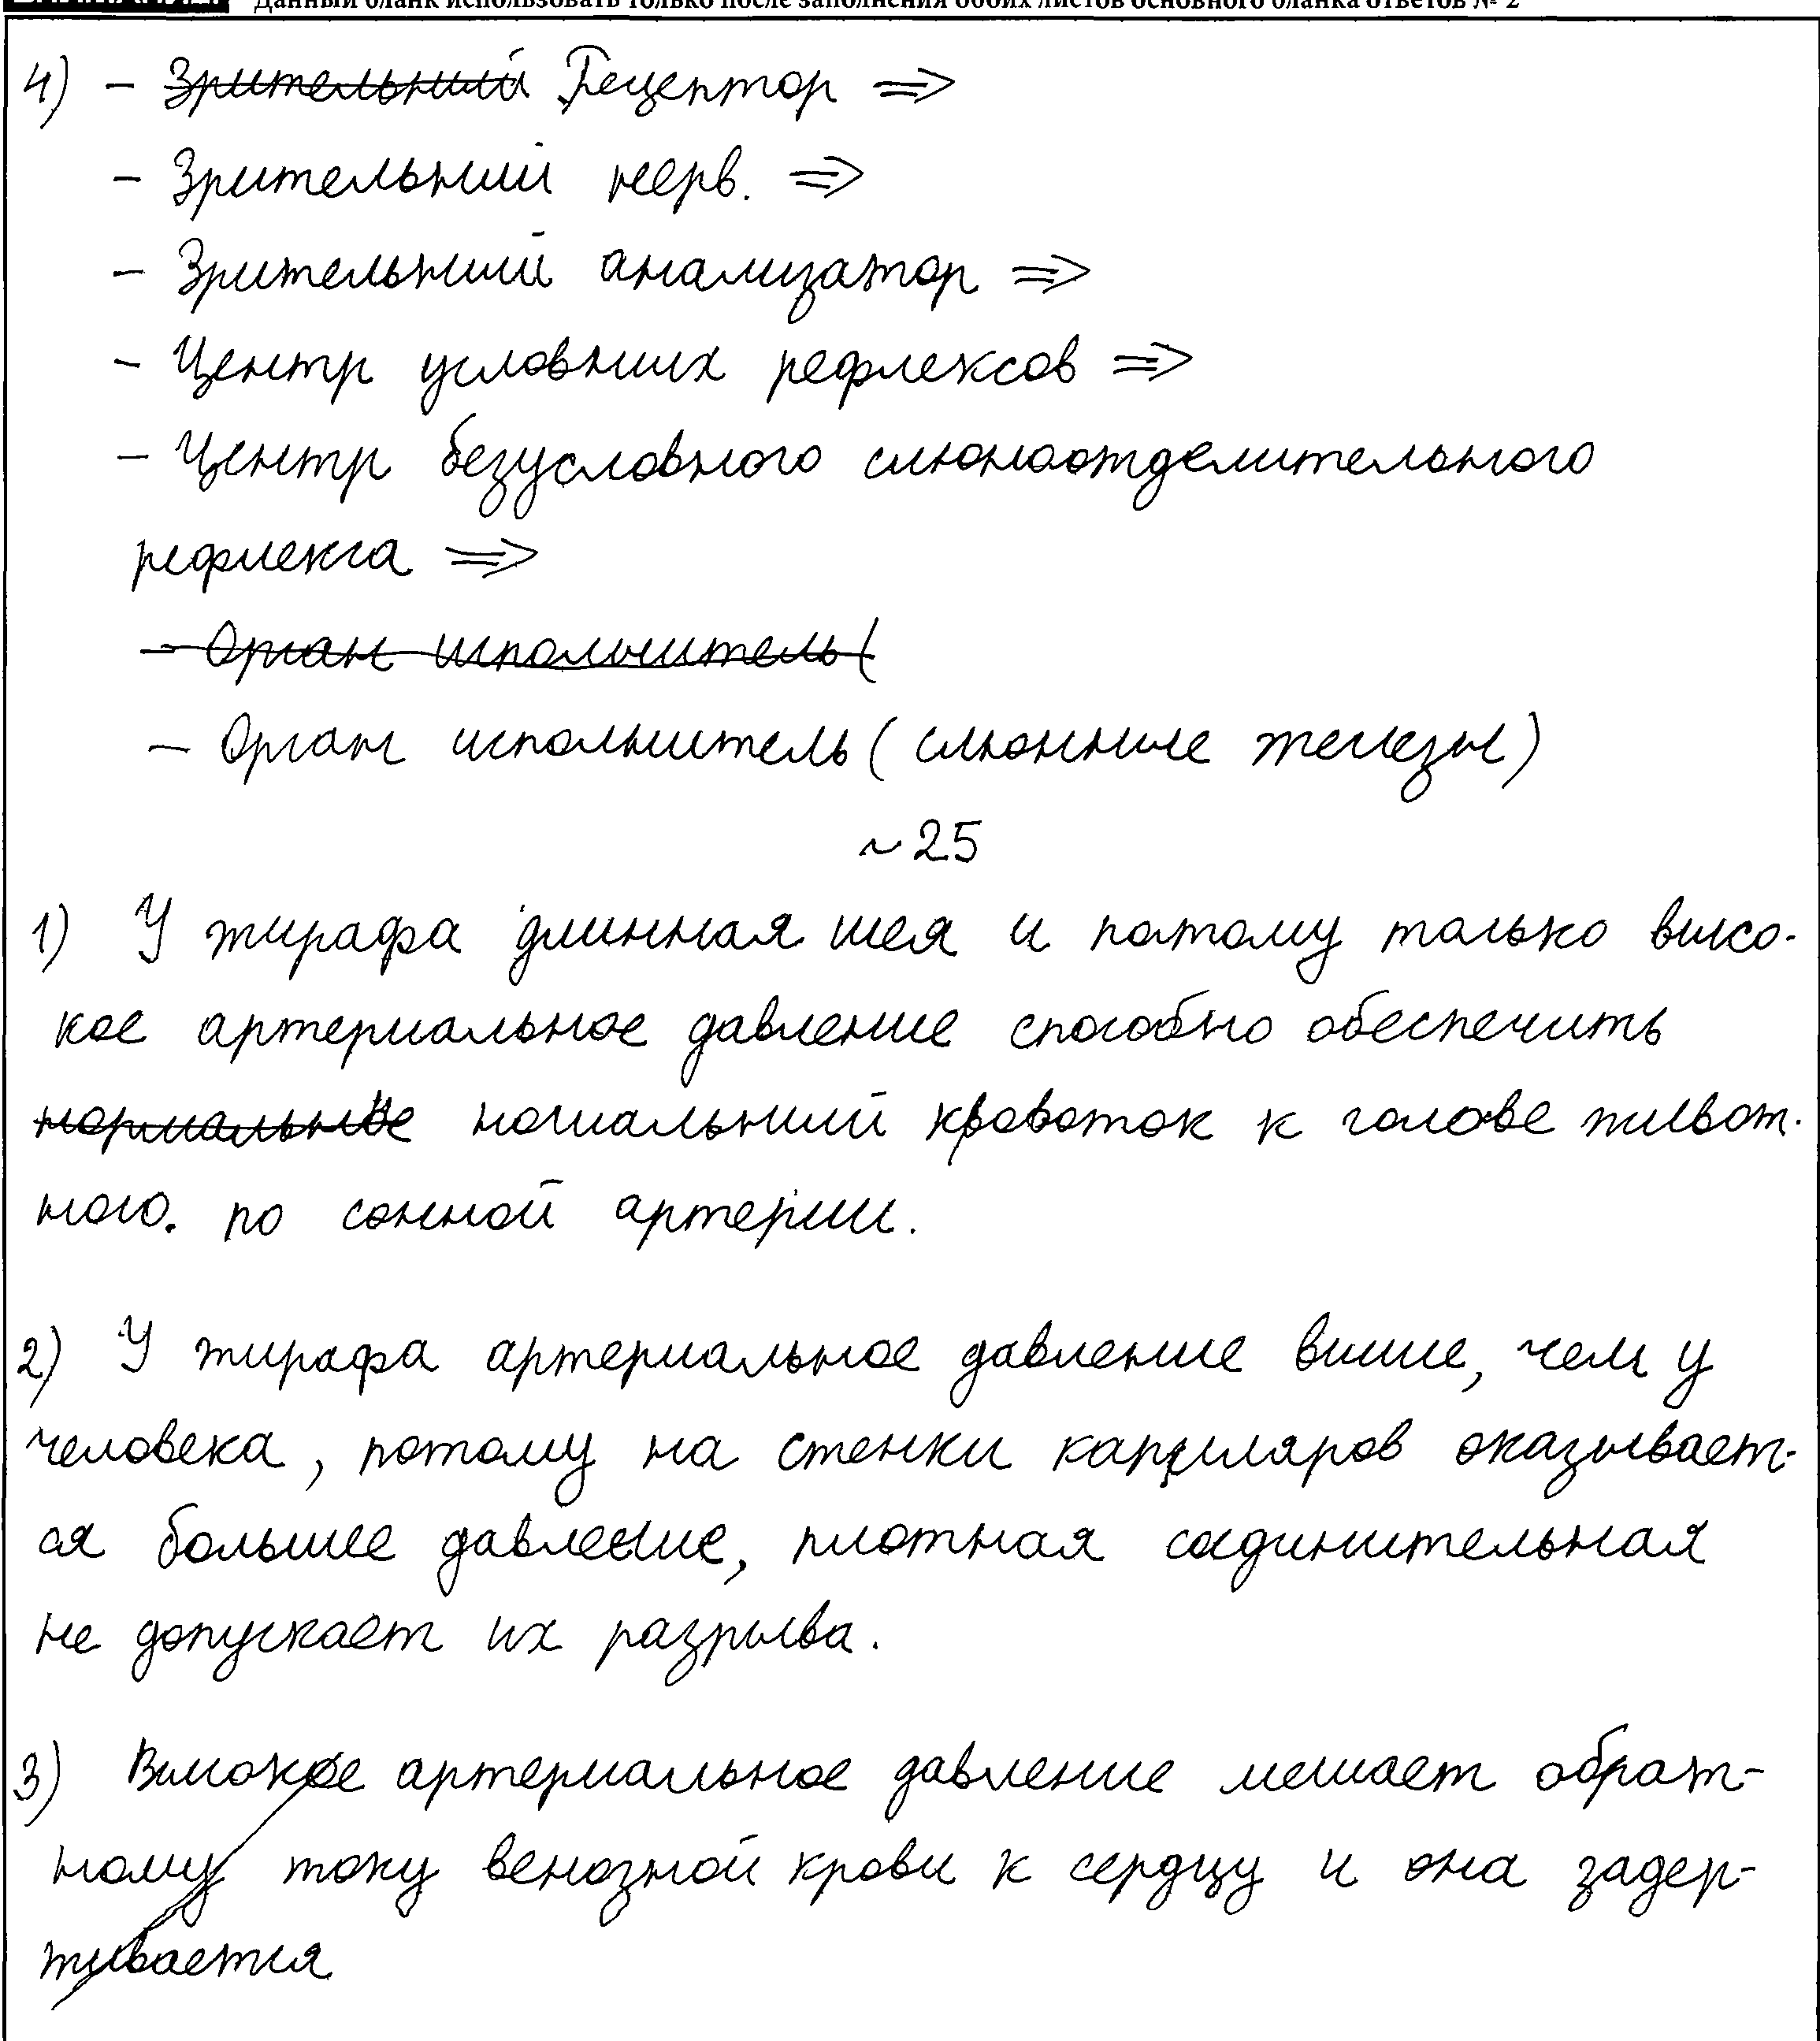 Данный бланк использовать только после заполнения обоих листов основного бланка ответов № 2
4) - Зрительный Рецептор =>
- Зрительный нерв. =>
- Зрительный анализатор =>
- Центр условных рефлексов =>
- Центр безусловного слюноотделительного
рефлекса =>
- Орган исполнитель (
- Орган исполнитель (слюнные железы)
~ 25
1) У жирафа длинная шея и потому только высо-
кое артериальное давление способно обеспечить
нормальное номальный кровоток к голове живот-
ного. по сонной артерии.
2) У жирафа артериальное давление выше, чем у
человека, потому на стенки капиляров оказывает-
ся большее давление, плотная соединительная
не допускает их разрыва.
3) Высокое артериальное давление мешает обрат-
ному току венозной крови к сердцу и она задер-
живается